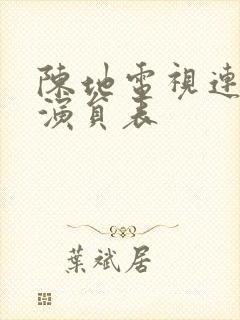 陳地電視連
演員表
葉斌居